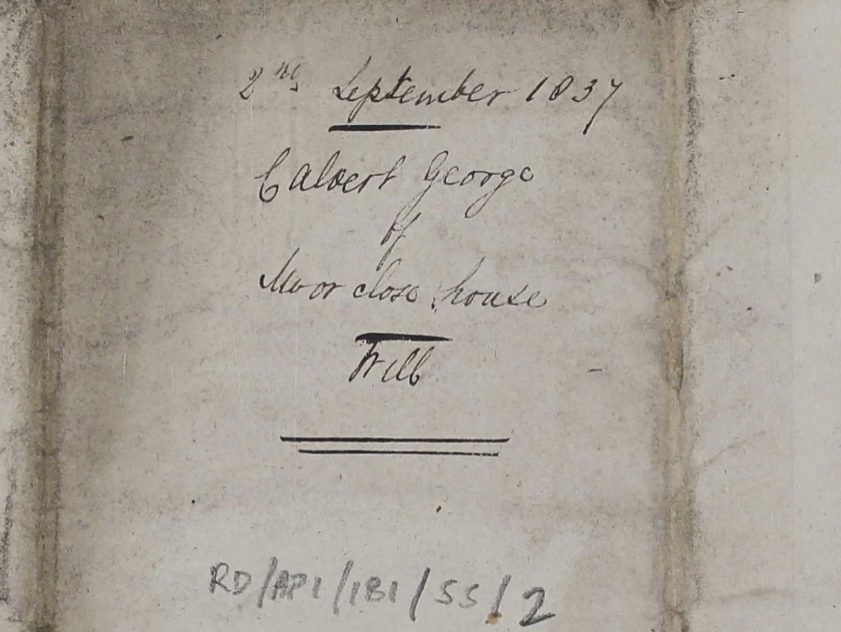 2nd September 1837
Calvert George
of
Moor close house
Will
RD/AP1/181/55/2